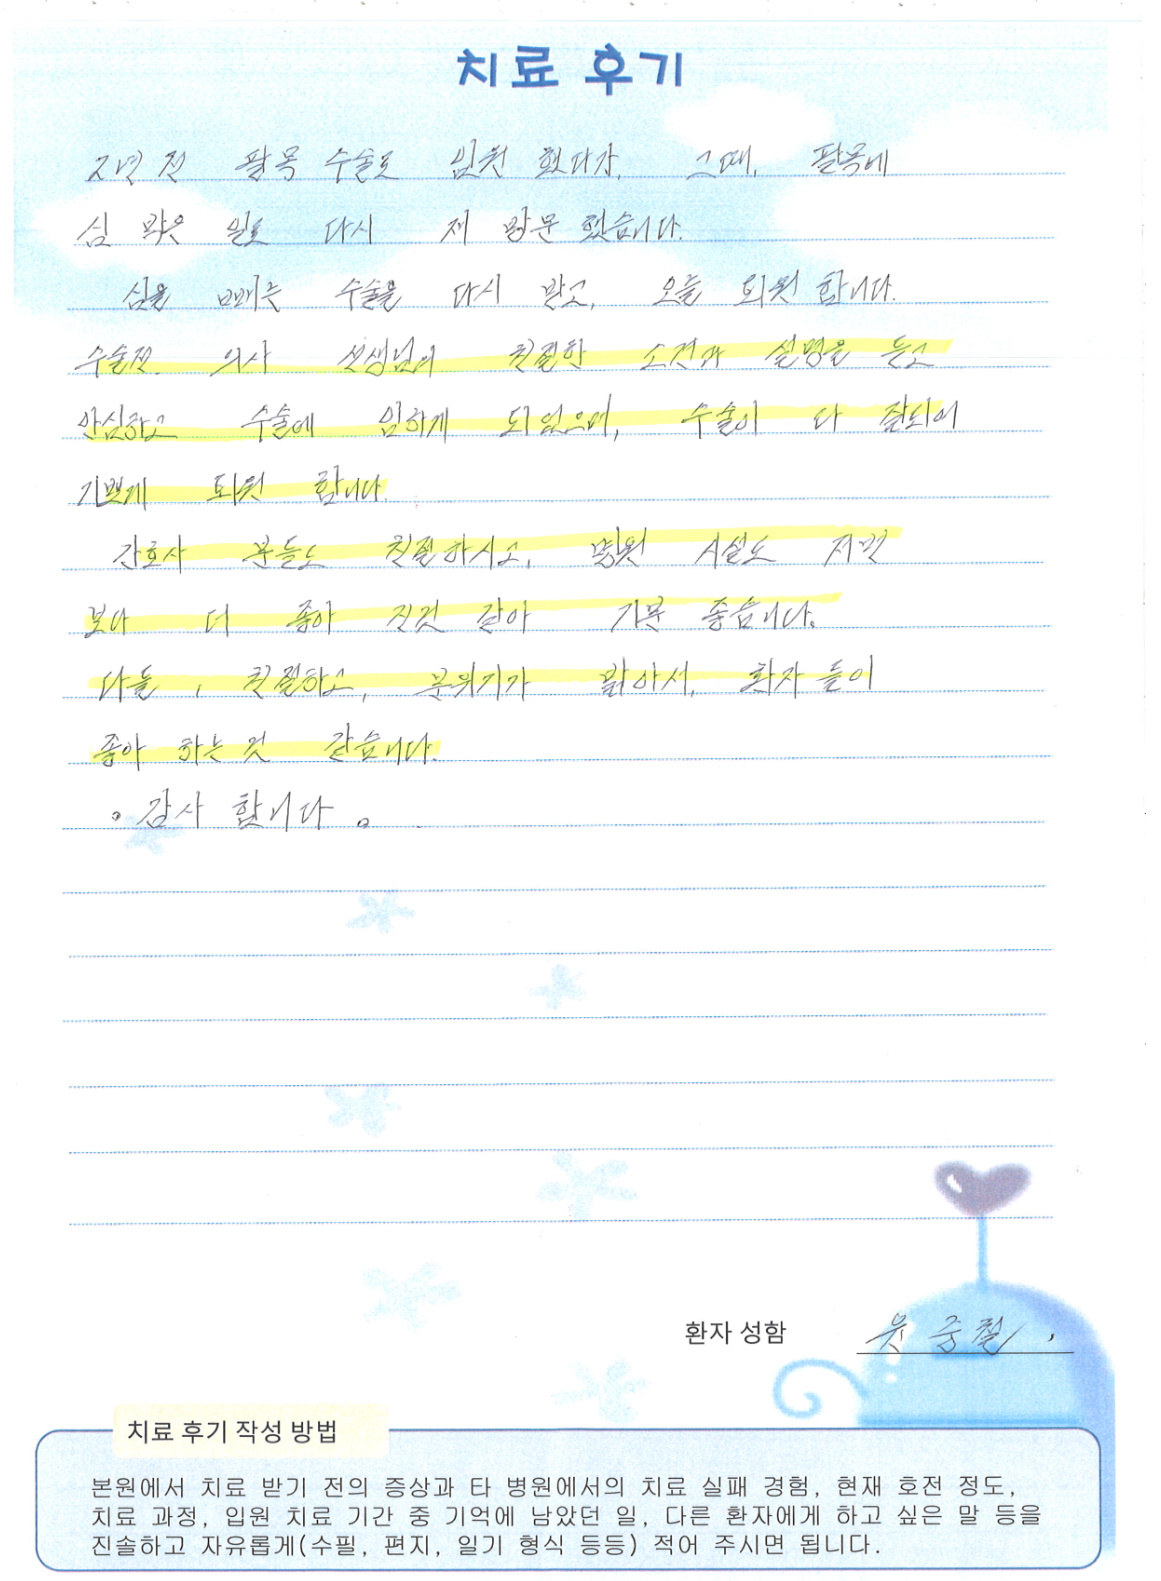 치료 후기
2년 전 팔목 수술로 입원 했다가, 그때, 팔목에
심 박은 일로 다시 재 방문 했습니다.
심을 빼는 수술을 다시 받고, 오늘 퇴원 합니다.
수술전. 의사 선생님의 친절한 소견과 설명을 듣고
안심하고 수술에 임하게 되었으며, 수술이 다 잘되어
기쁘게 퇴원 합니다.
간호사 분들도 친절하시고, 병원 시설도 저번
보다 더 좋아 진것 같아 기분 좋습니다.
다들, 친절하고, 분위기가 밝아서, 환자들이
좋아 하는 것 같습니다.
감사 합니다.
환자 성함
치료 후기 작성 방법
본원에서 치료 받기 전의 증상과 타 병원에서의 치료 실패 경험, 현재 호전 정도,
치료 과정, 입원 치료 기간 중 기억에 남았던 일, 다른 환자에게 하고 싶은 말 등을
진솔하고 자유롭게(수필, 편지, 일기 형식 등등) 적어 주시면 됩니다.